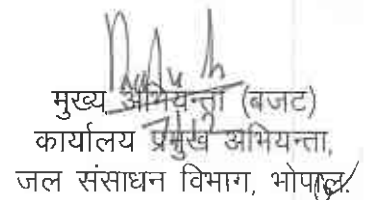 मुख्य अभियन्ता (बजट)
कार्यालय प्रमुख अभियन्ता,
जल संसाधन विभाग, भोपाल.